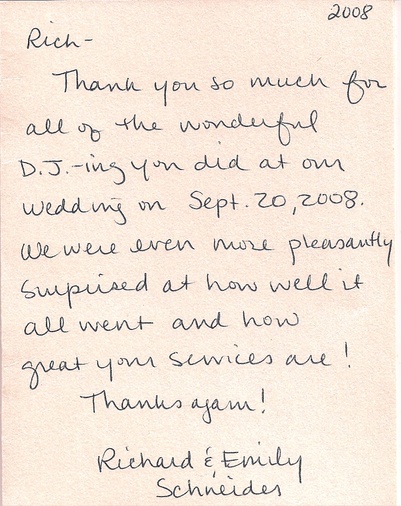 2008
Rich-
Thank you so much for
all of the wonderful
D.J.-ing you did at our
wedding on Sept. 20, 2008.
We were even more pleasantly
surprised at how well it
all went and how
great your services are!
Thanks again!
Richard & Emily
Schneider